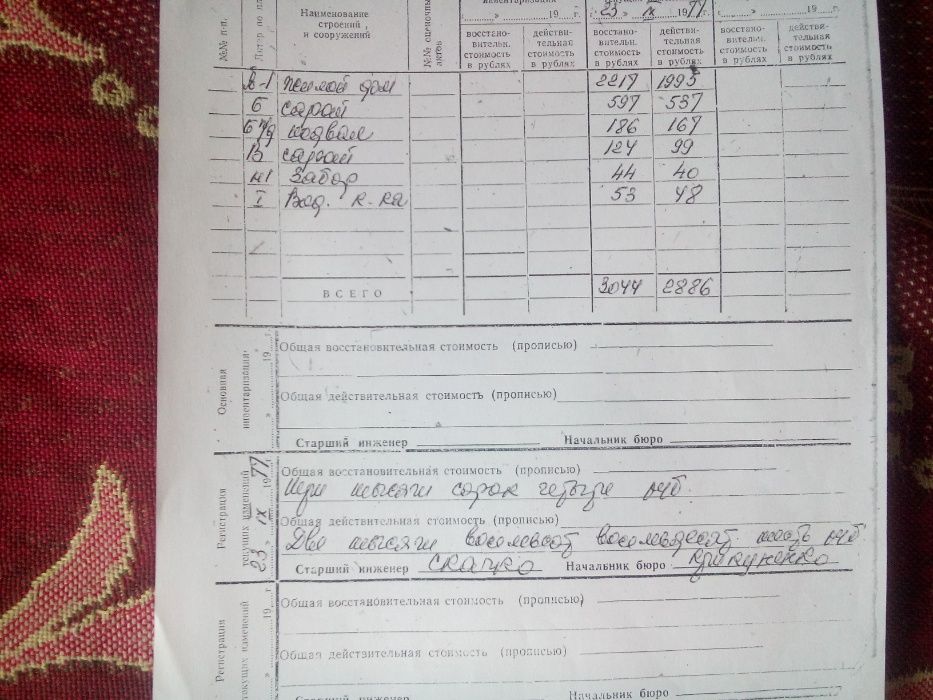 инвентаризации
№№ п-п. Литер по пл Наименование строений и сооружений №№ оценочных актов
„ „ 19 г. 23 „ IX 1977 г. „ „ 19 г.
восстано- действи- восстано- действи- восстано- действи-
вительн. тельная вительн. тельная вительн. тельная
стоимость стоимость стоимость стоимость стоимость стоимость
в рублях в рублях в рублях в рублях в рублях в рублях
А-1 жилой дом 2217 1995
Б сарай 597 537
Б п/д подвал 186 167
В сарай 124 99
№1 Забор 44 40
I Вход. к-ка 53 48
ВСЕГО 3044 2886
Основная инвентаризация „ „ 19 г.
Общая восстановительная стоимость (прописью)
Общая действительная стоимость (прописью)
Старший инженер Начальник бюро
Регистрация текущих изменений 23 „ IX 1977 г.
Общая восстановительная стоимость (прописью)
три тысячи сорок четыре руб.
Общая действительная стоимость (прописью)
Две тысячи восемьсот восемьдесят шесть руб
Старший инженер Скачко Начальник бюро
Регистрация текущих изменений „ „ 19 г.
Общая восстановительная стоимость (прописью)
Общая действительная стоимость (прописью)
Старший инженер Начальник бюро